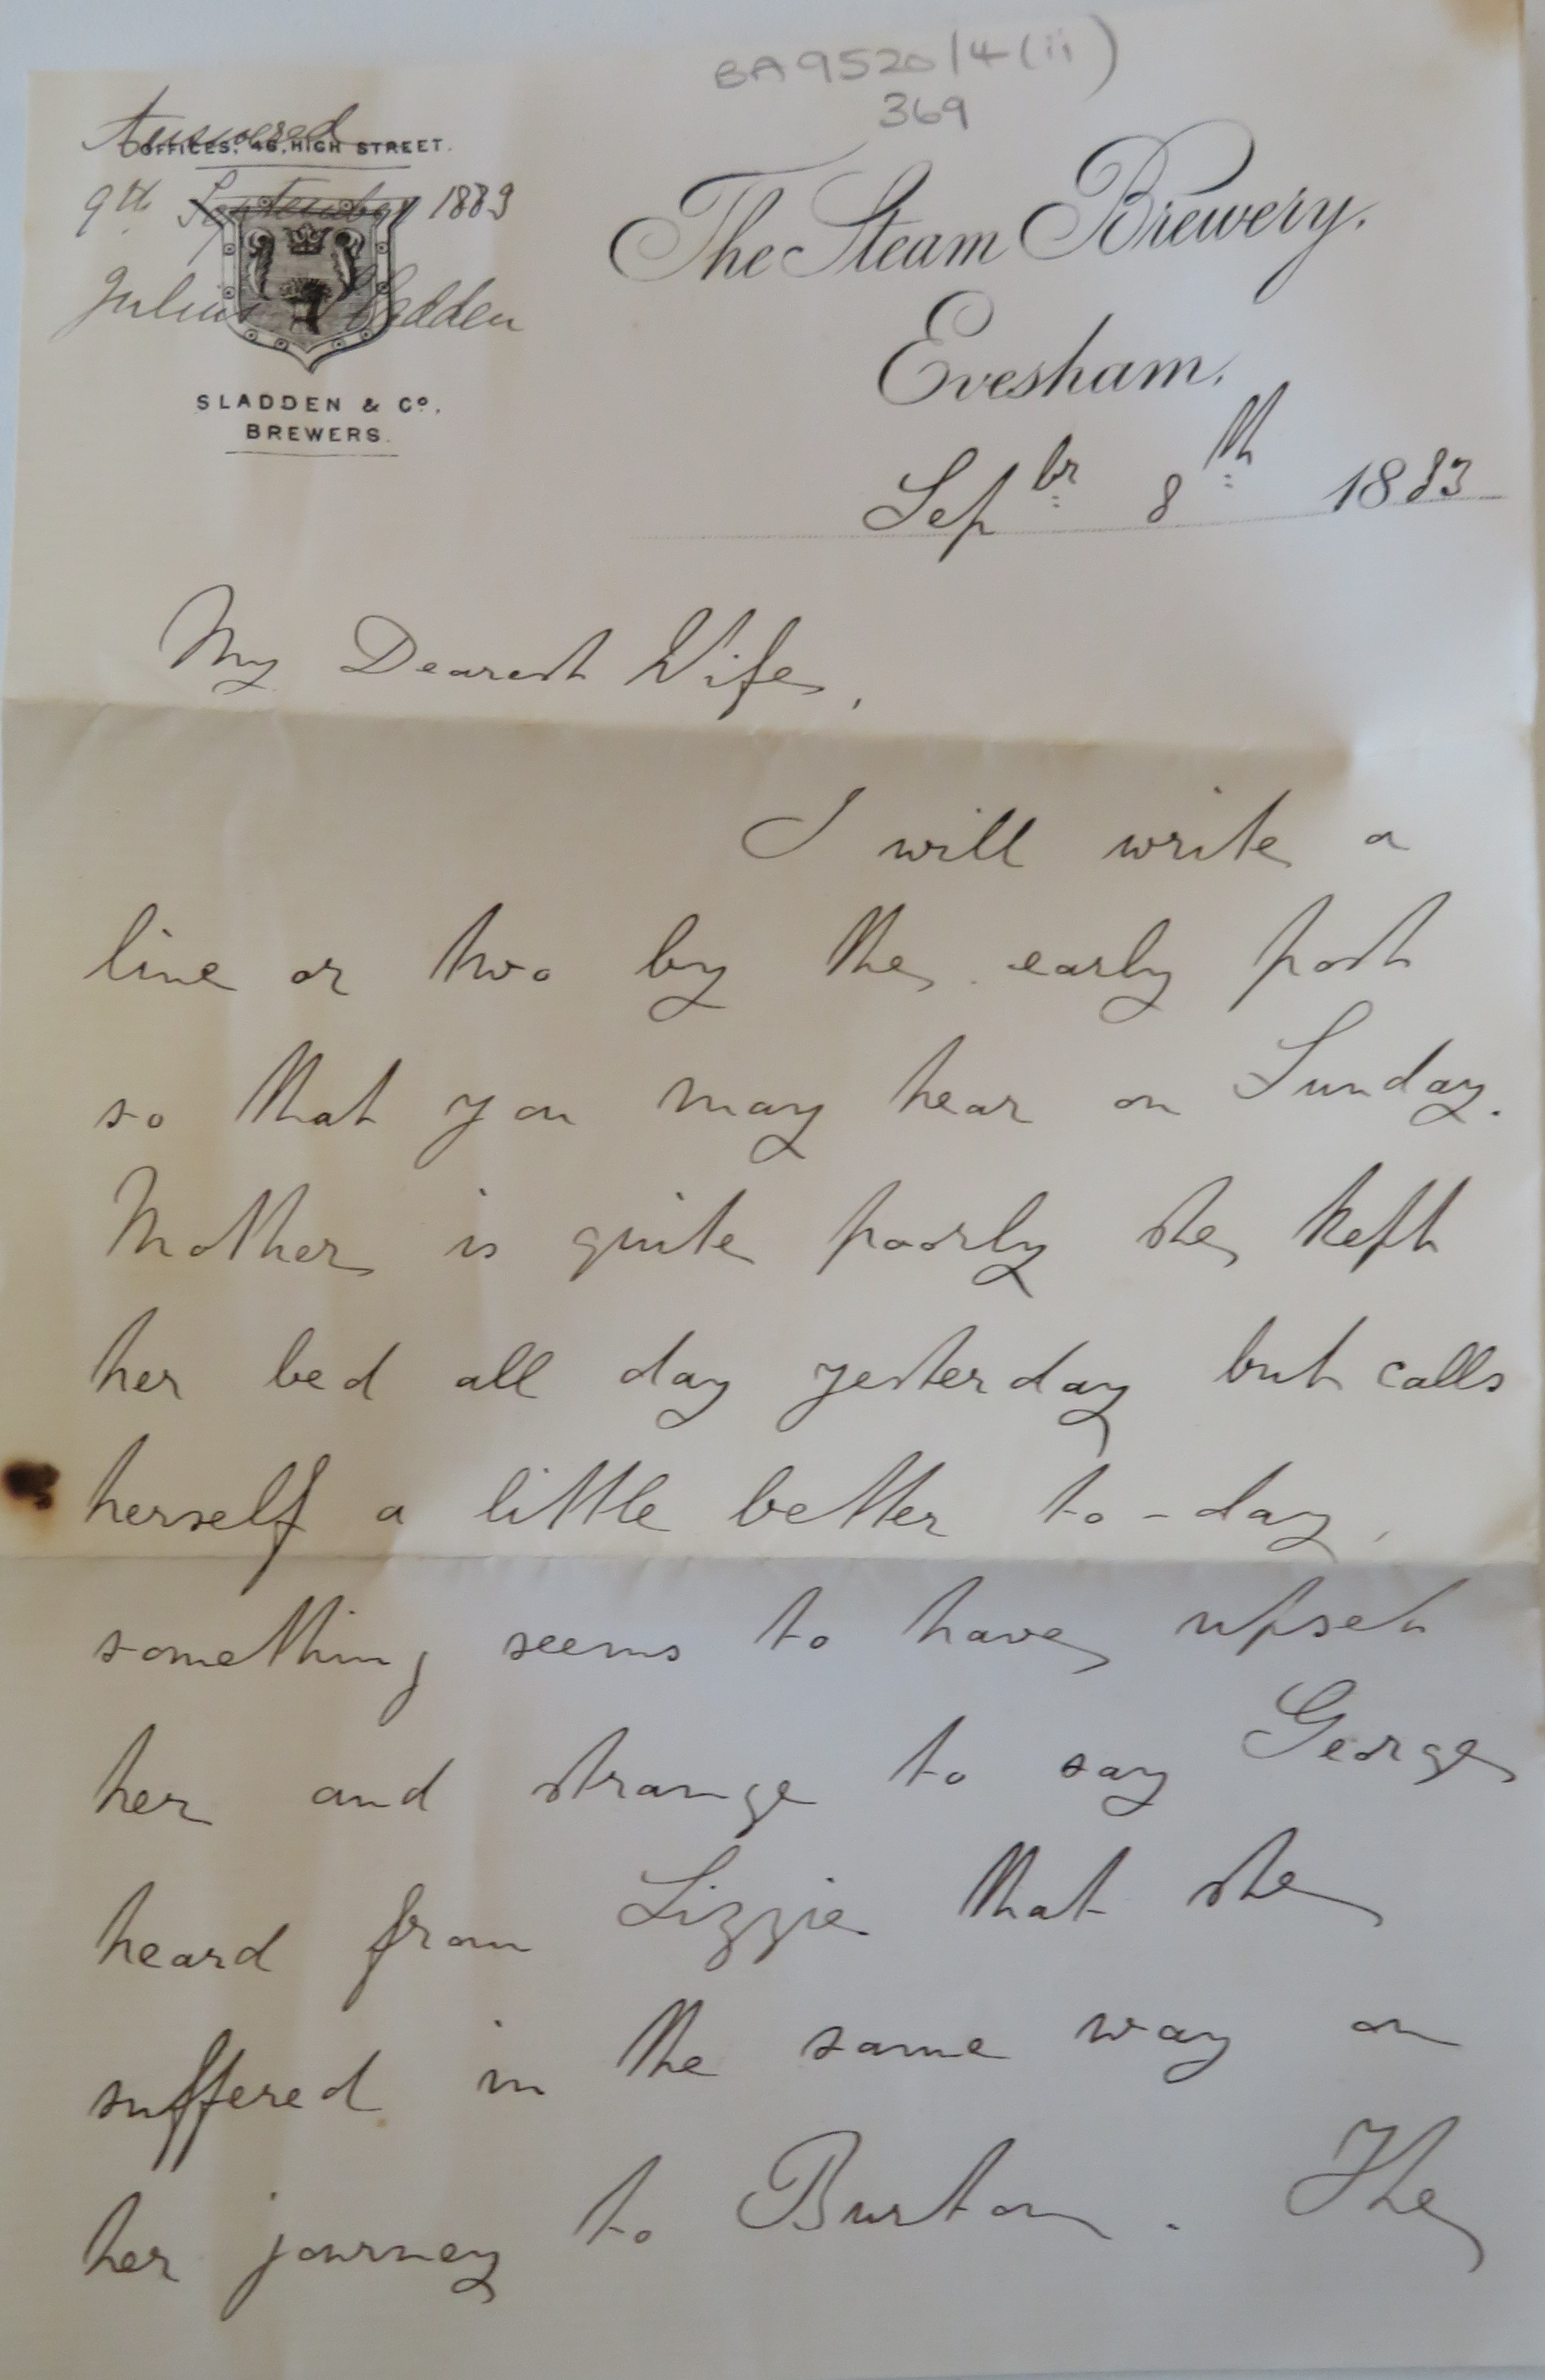 BA9520/4(ii)
369
Answered
OFFICES, 46, HIGH STREET.
9th September 1883
Julius Sladden
SLADDEN & Co.
BREWERS.
The Steam Brewery,
Evesham,
Sepbr 8th 1883
My Dearest Wife,
I will write a
line or two by the early post
so that you may hear on Sunday.
Mother is quite poorly she kept
her bed all day yesterday but calls
herself a little better to-day,
something seems to have upset
her and strange to say George
heard from Lizzie that she
suffered in the same way on
her journey to Burton. The